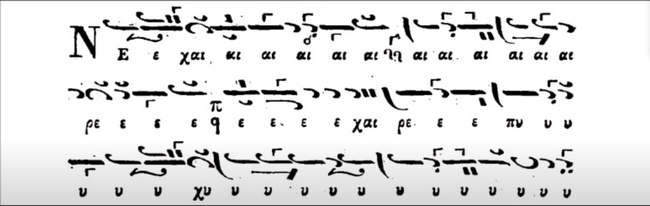 Ν Ε ε χαι αι αι αι αι αι αι αι αι αι αι αι
ρε ε ε ε π q ε ε ε ε χαι ρε ε ε πυ υ υ
υ υ υ χυ υ υ υ υ υ υ υ υ υ υ υ υ